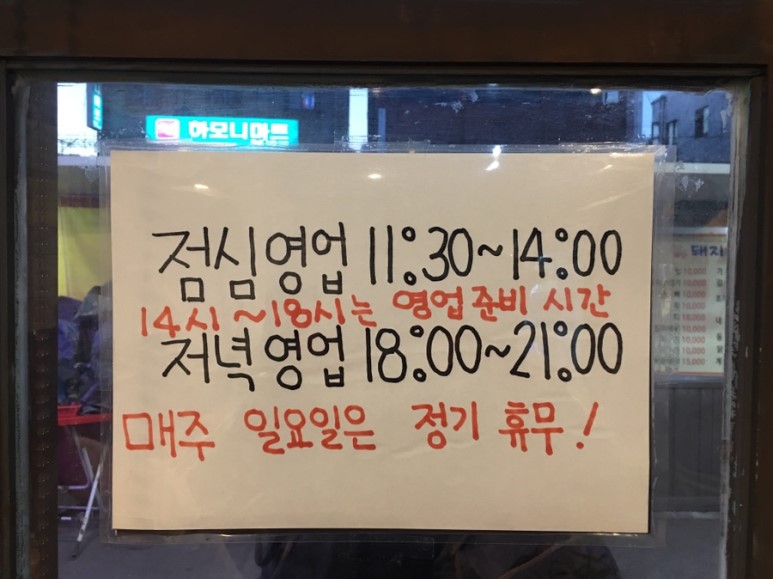 하모니마트
점심영업 11:30~14:00
14시~18시는 영업준비 시간
저녁영업 18:00~21:00
매주 일요일은 정기 휴무!
돼지
10,000
10,000
10,000
10,000